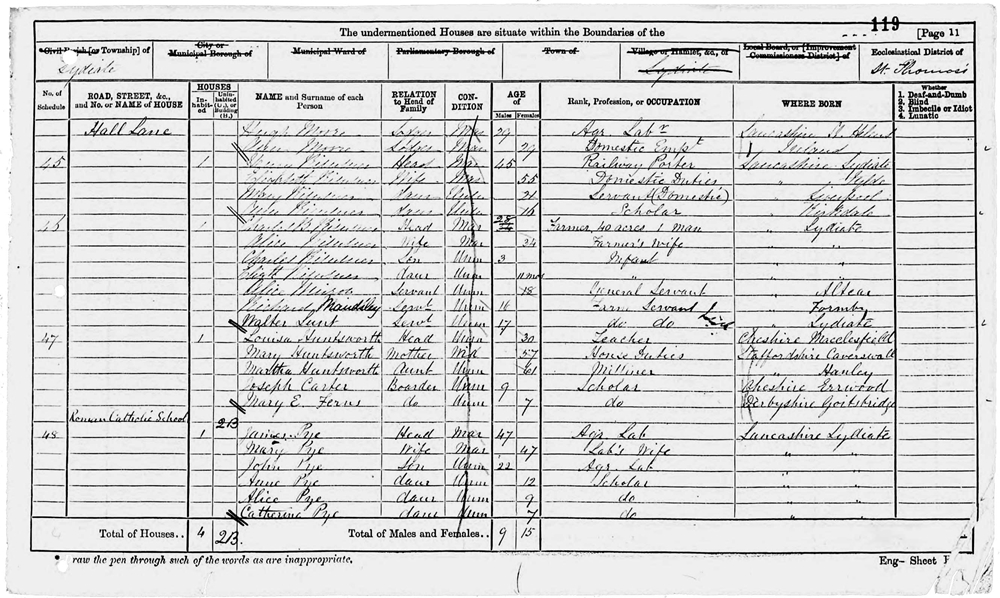 119
The undermentioned Houses are situate within the Boundaries of the
[Page 11
Civil Parish [or Township] of
City or Municipal Borough of
Municipal Ward of
Parliamentary Borough of
Town of
Village or Hamlet, &c., of
Local Board, or [Improvement Commissioners District] of
Ecclesiastical District of
Lydiate
Lydiate
St. Thomas's
No. of Schedule
ROAD, STREET, &c., and No. or NAME of HOUSE
HOUSES
Inhabited
Uninhabited (U.), or Building (B.)
NAME and Surname of each Person
RELATION to Head of Family
CONDITION
AGE of
Males
Females
Rank, Profession, or OCCUPATION
WHERE BORN
Whether
1. Deaf-and-Dumb
2. Blind
3. Imbecile or Idiot
4. Lunatic
Hall Lane Hugh Moore Lodger Mar 29 Agr Labr Lancashire St Helens
Moore Lodger Mar 29 Domestic Empt Ireland
45 1 Head Mar 45 Railway Porter Lancashire Lydiate
Wife Mar 55 Domestic Duties "
Mary 21 Servant (Domestic) " Liverpool
16 Scholar " Kirkdale
46 1 Head Mar 28 Farmer 40 acres 1 man " Lydiate
Alice Wife Mar 24 Farmer's Wife " "
Charles Son Unm 3 Infant " "
daur Unm 11 mos " " "
Alice Servant Unm 18 General Servant " Altcar
Richard Mawdsley Servt Unm 16 Farm Servant Ind " Formby
Walter Lunt Servt Unm 17 do do " Lydiate
47 1 Louisa Huntsworth Head Unm 30 Teacher Cheshire Macclesfield
Mary Huntsworth Mother Wid 57 House Duties Staffordshire Caverswall
Martha Huntsworth Aunt Unm 61 Milliner " Hanley
Joseph Carter Boarder Unm 9 Scholar Cheshire Errwood
Mary E. Ferns do Unm 7 do Derbyshire Goitsbridge
Roman Catholic School 2B
48 1 James Pye Head Mar 47 Agr. Lab Lancashire Lydiate
Mary Pye Wife Mar 47 Lab's Wife " "
John Pye Son Unm 22 Agr. Lab " "
Anne Pye daur Unm 12 Scholar " "
Alice Pye daur Unm 9 do " "
Catherine Pye daur Unm 7 do " "
Total of Houses.. 4 2B. Total of Males and Females.. 9 15
raw the pen through such of the words as are inappropriate.
Eng- Sheet